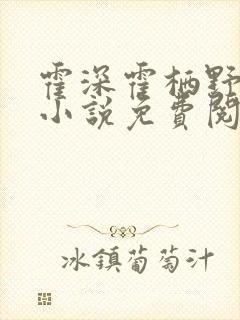 霍深霍栖野
小说免费阅
冰鎮葡萄汁